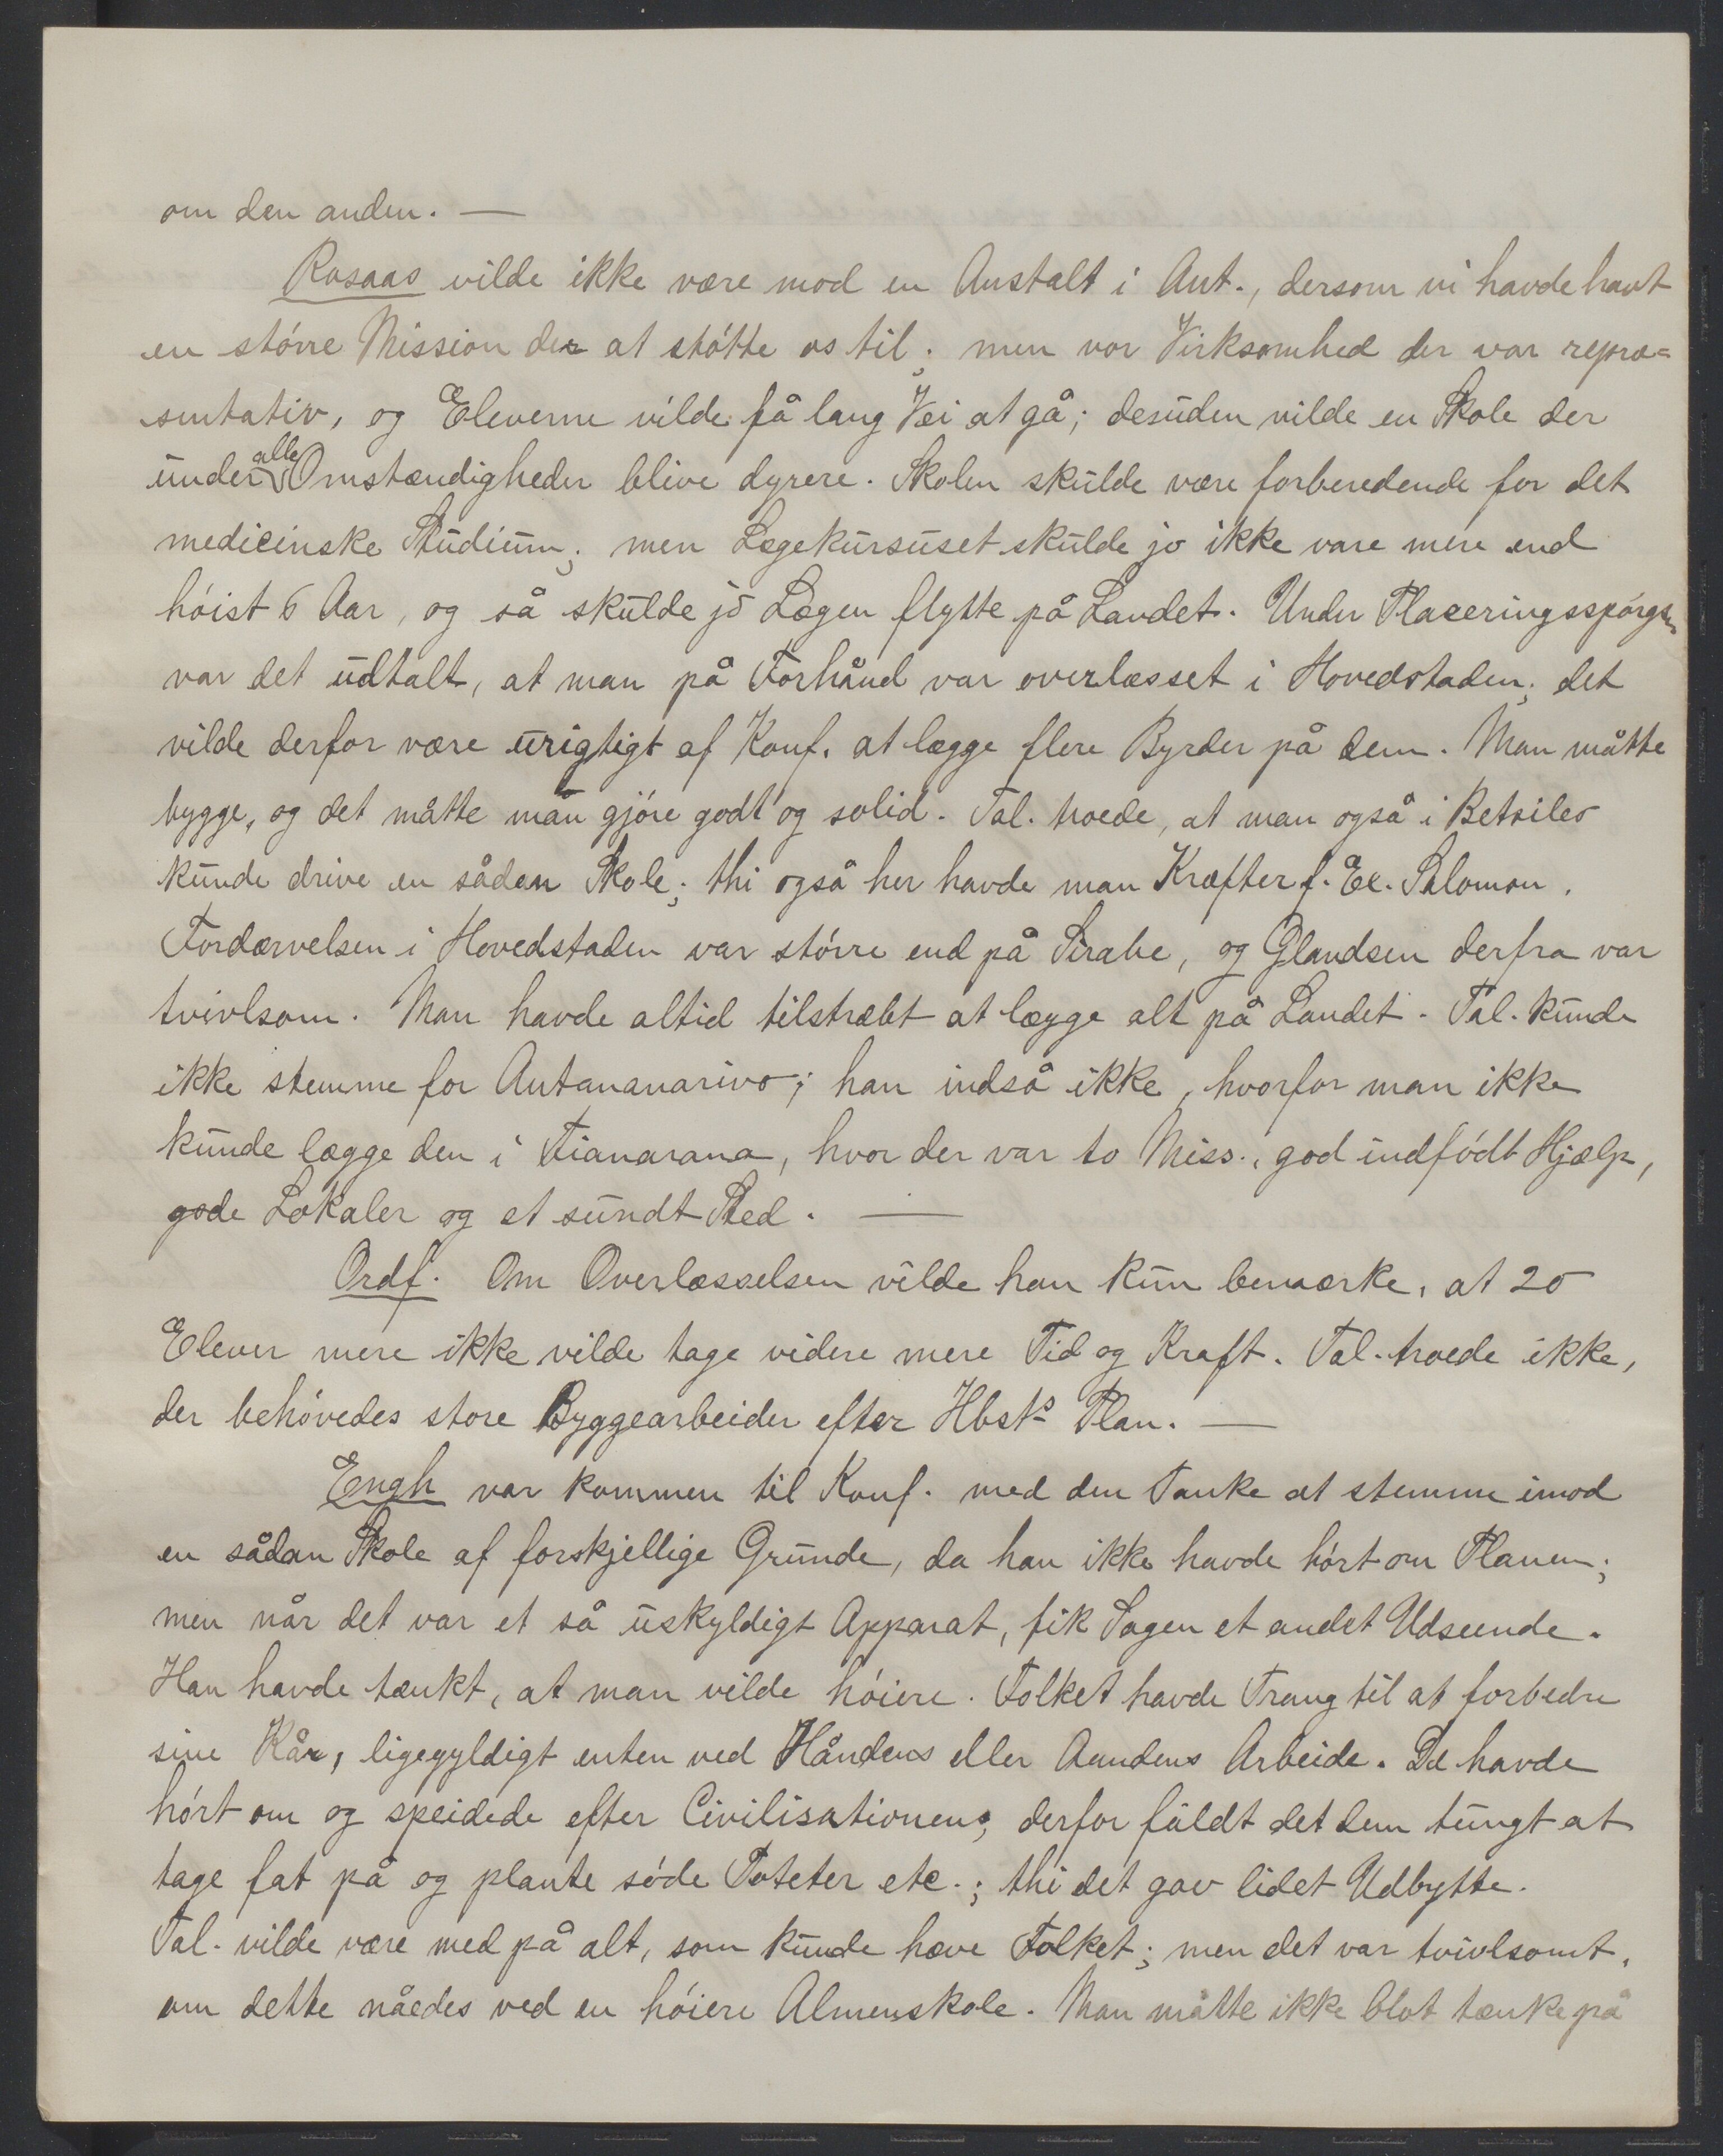 om den anden. —
Rosaas vilde ikke være mod en Anstalt i Ant., dersom vi havde havt
en større Mission der at støtte os til; men vor Virksomhed der var repræ=
sentativ, og Eleverne vilde få lang Vei at gå; desuden vilde en Skole der
under alle Omstændigheder blive dyrere. Skolen skulde være forberedende for det
medicinske Studium; men Lægekursuset skulde jo ikke vare mere end
høist 6 Aar, og så skulde jo Lægen flytte på Landet. Under Placeringsspørgsm.
var det udtalt, at man på Forhånd var overlæsset i Hovedstaden; det
vilde derfor være urigtigt af Konf. at lægge flere Byrder på dem. Man måtte
bygge, og det måtte man gjøre godt og solid. Tal. troede, at man også i Betsileo
kunde drive en sådan Skole; thi også her havde man Kræfter f. Ex. Salomon.
Fordærvelsen i Hovedstaden var større end på Sirabe, og Glandsen derfra var
tvivlsom. Man havde altid tilstræbt at lægge alt på Landet. Tal. kunde
ikke stemme for Antananarivo; han indså ikke, hvorfor man ikke
kunde lægge den i Fianarana, hvor der var to Miss., god indfødt Hjælp,
gode Lokaler og et sundt Sted. —
Ordf. Om Overlæsselsen vilde han kun bemærke, at 20
Elever mere ikke vilde tage videre mere Tid og Kraft. Tal. troede ikke,
der behøvedes store Byggearbeider efter Hbsts Plan. —
Engh var kommen til Konf. med den Tanke at stemme imod
en sådan Skole af forskjellige Grunde, da han ikke havde hørt om Planen;
men når det var et så uskyldigt Apparat, fik Sagen et andet Udseende.
Han havde tænkt, at man vilde høiere. Folket havde Trang til at forbedre
sine Kår, ligegyldigt enten ved Håndens eller Aandens Arbeide. De havde
hørt om og speidede efter Civilisationen; derfor faldt det dem tungt at
tage fat på og plante søde Poteter etc.; thi det gav lidet Udbytte.
Tal. vilde være med på alt, som kunde hæve Folket; men det var tvivlsomt,
om dette nåedes ved en høiere Almenskole. Man måtte ikke blot tænke på